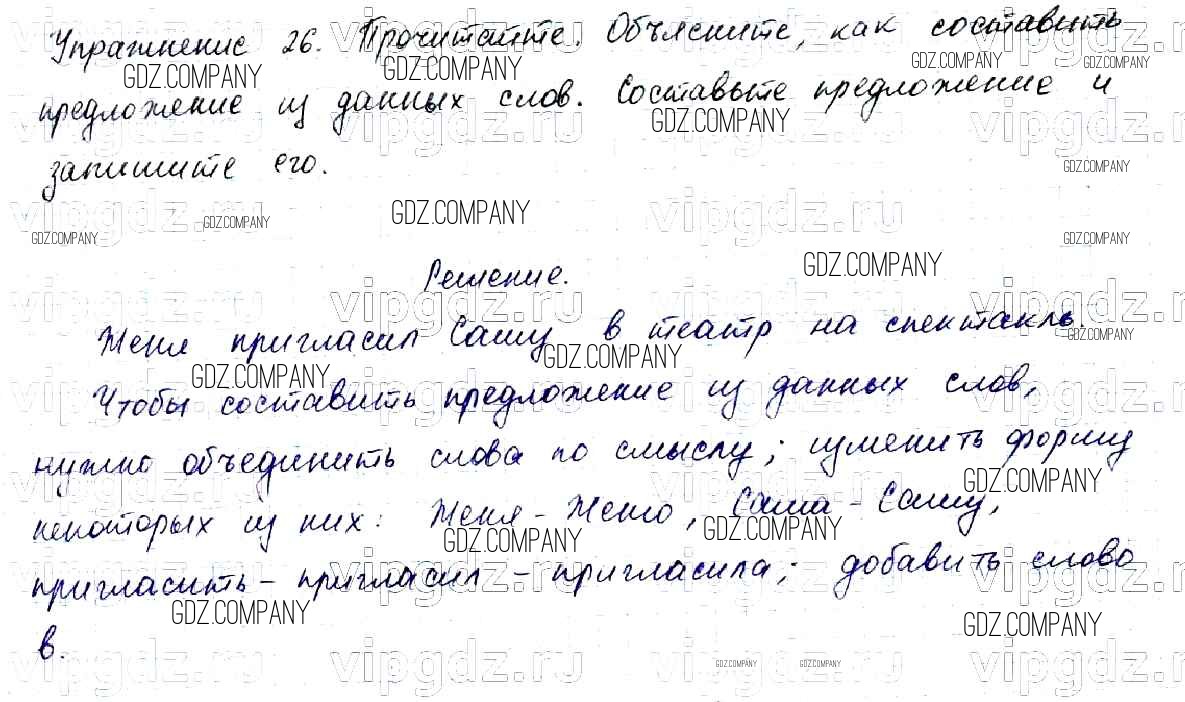 Упражнение 26. Прочитайте. Объясните, как составить
предложение из данных слов. Составьте предложение и
запишите его.
Решение.
Женя пригласил Сашу в театр на спектакль.
Чтобы составить предложение из данных слов,
нужно объединить слова по смыслу; изменить форму
некоторых из них: Женя - Женю, Саша - Сашу,
пригласить - пригласил - пригласила; добавить слово
в.
GDZ.COMPANY
vipgdz.ru